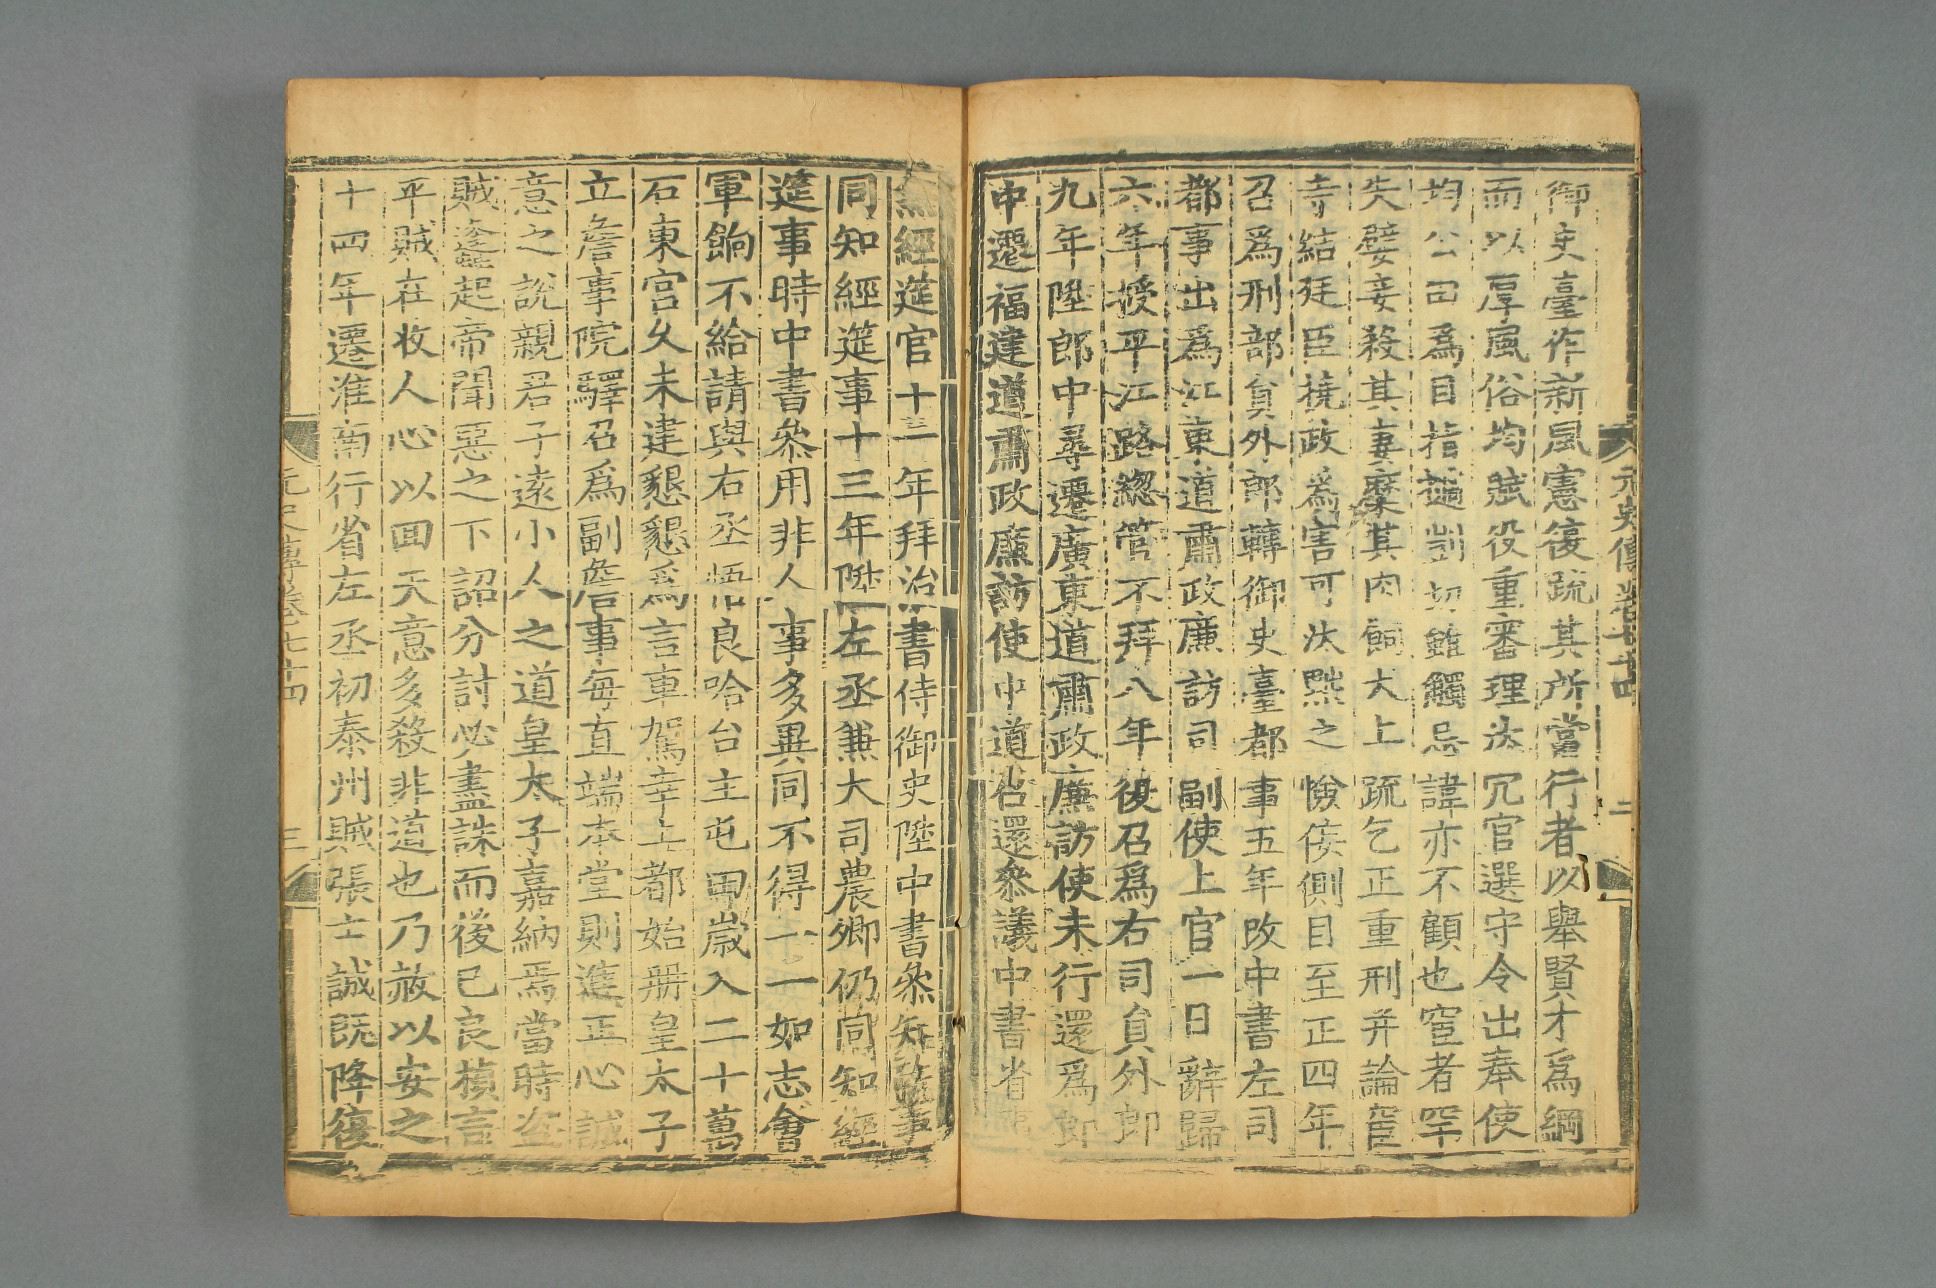 元史傳卷七十四 二
御史臺作新風憲復疏其所當行者以舉賢才爲綱
而以厚風俗均賦役重審理汰冗官選守令出奉使
均公田爲目指擿剴切雖觸忌諱亦不顧也宦者罕
失嬖妾殺其妻糜其肉飼犬上疏乞正重刑并論宦
寺結廷臣撓政爲害可汰黜之憸佞側目至正四年
召爲刑部員外郎轉御史臺都事五年改中書左司
都事出爲江東道肅政廉訪司副使上官一日辭歸
六年授平江路總管不拜八年復召爲右司員外郎
九年陞郎中尋遷廣東道肅政廉訪使未行還爲郎
中遷福建道肅政廉訪使中道召還參議中書省
經筵官十一年拜治書侍御史陞中書參知政事
同知經筵事十三年陞左丞兼大司農卿仍同知經
筵事時中書參用非人事多異同不得一一如志會
軍餉不給請與右丞悟良哈台主屯田歲入二十萬
石東宮久未建懇懇爲言車駕幸上都始冊皇太子
立詹事院驛召爲副詹事每直端本堂則進正心誠
意之說親君子遠小人之道皇太子嘉納焉當時盜
賊蠭起帝聞惡之下詔分討必盡誅而後已良楨言
平賊在收人心以回天意多殺非道也乃赦以安之
十四年遷淮南行省左丞初泰州賊張士誠既降復
元史傳卷七十四 三